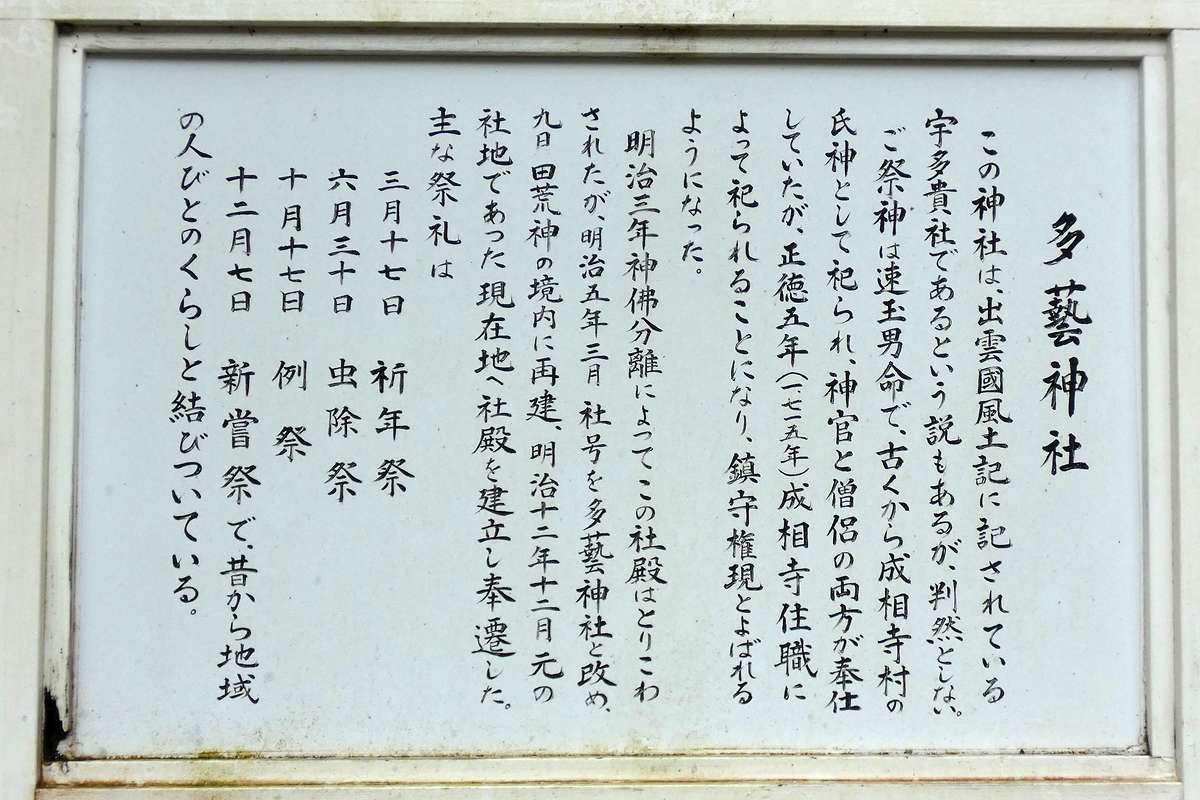 多藝神社
この神社は、出雲國風土記に記されている
宇多貴社であるという説もあるが、判然としない。
ご祭神は速玉男命で、古くから成相寺村の
氏神として祀られ、神官と僧侶の両方が奉仕
していたが、正徳五年（一七一五年）成相寺住職に
よって祀られることになり、鎮守権現とよばれる
ようになった。
明治三年神佛分離によってこの社殿はとりこわ
されたが、明治五年三月 社号を多藝神社と改め、
九日 田荒神の境内に再建、明治十二年十二月 元の
社地であった現在地へ社殿を建立し奉遷した。
主な祭礼は
三月十七日 祈年祭
六月三十日 虫除祭
十月十七日 例祭
十二月七日 新嘗祭で、昔から地域
の人びとのくらしと結びついている。